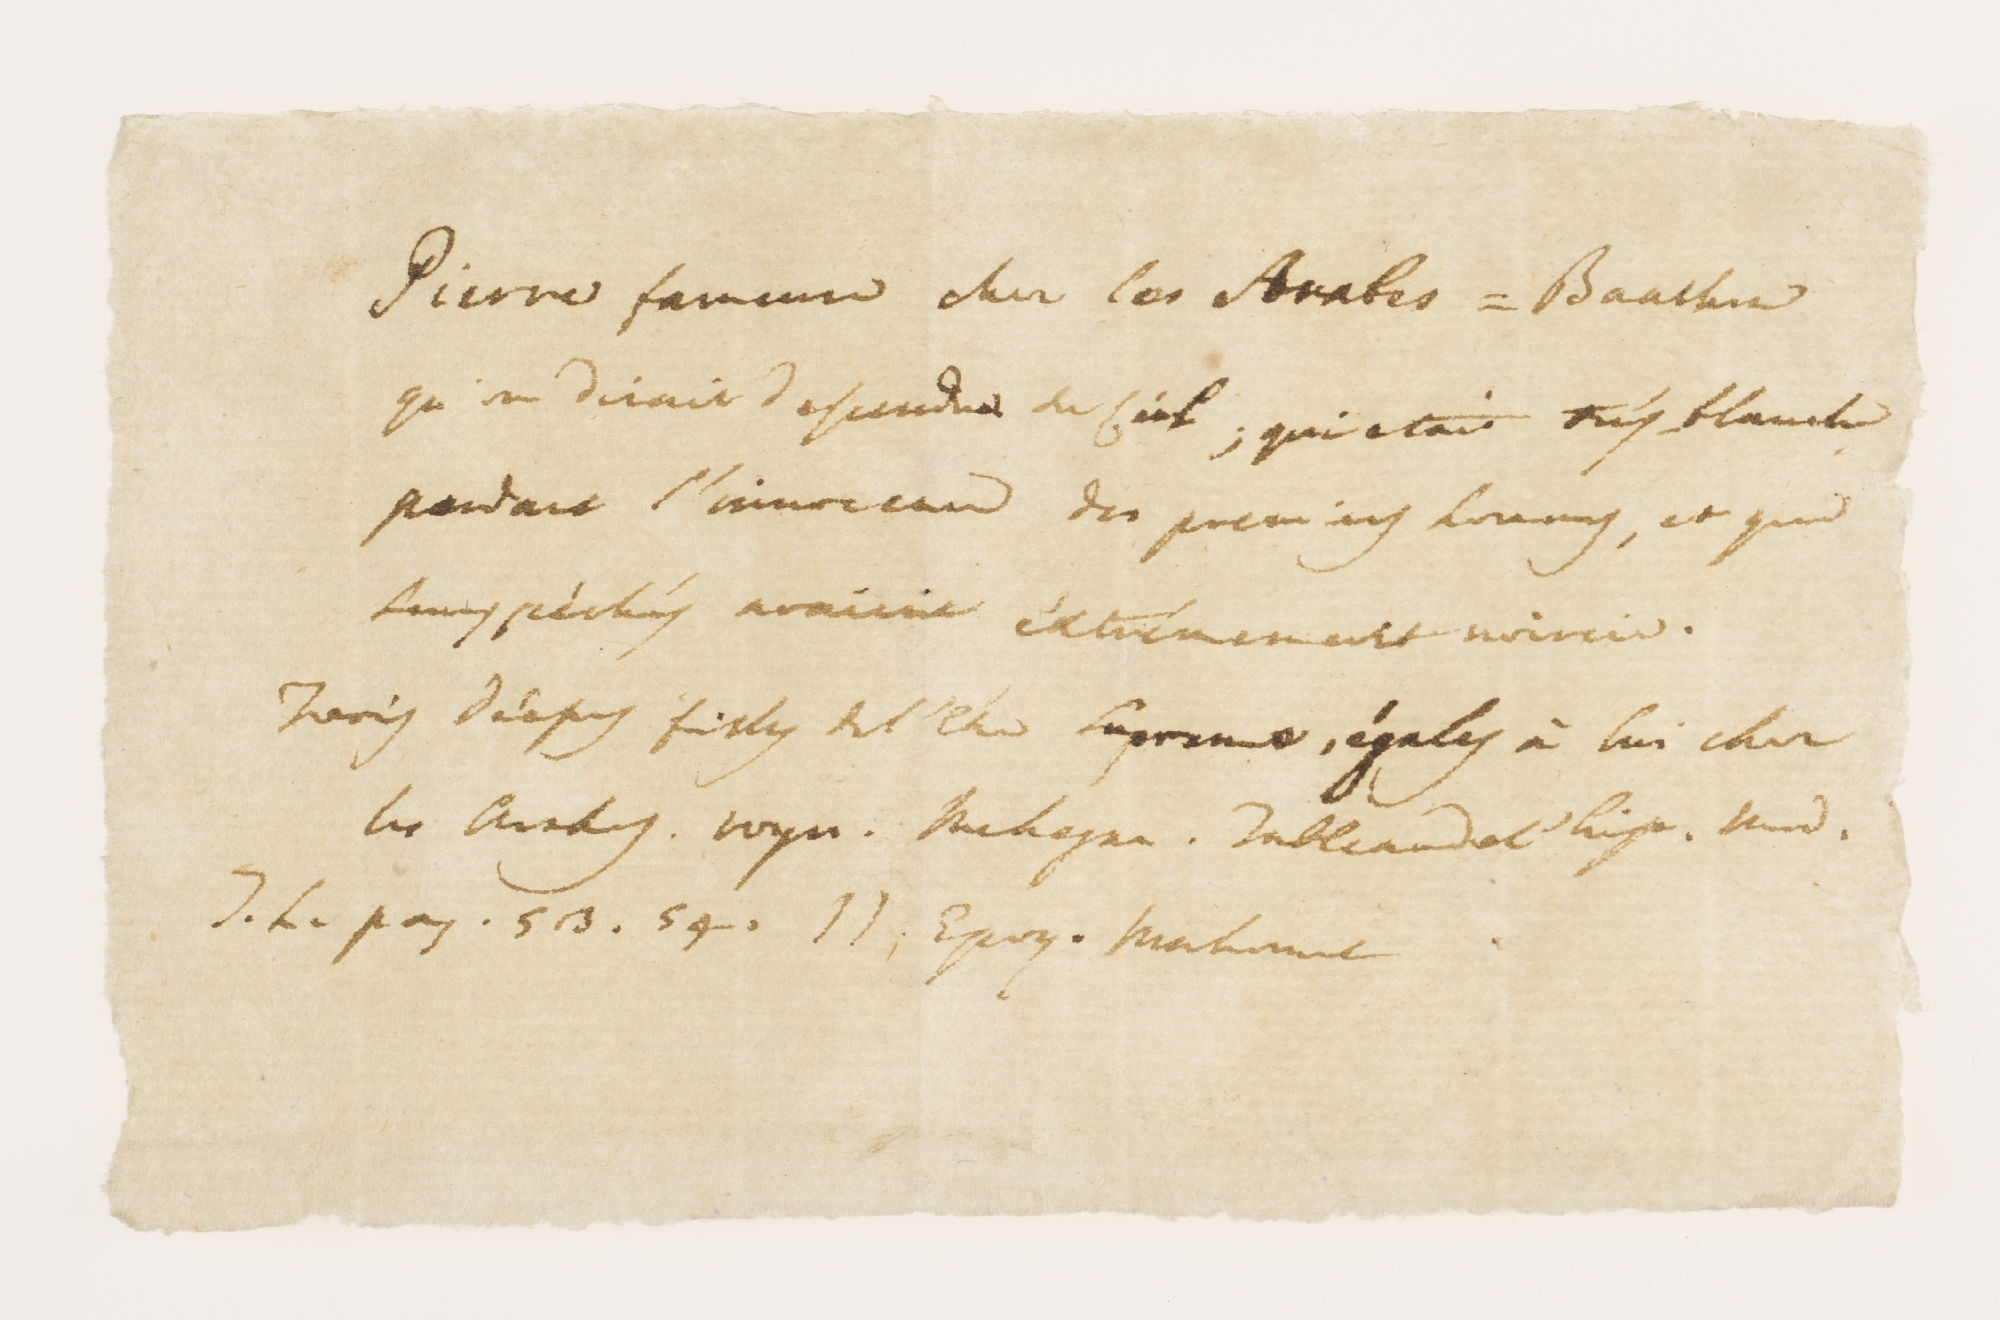 Pierre fameuse chez les Arabes = Baathen
qu'on disait descendue du Ciel, qui etait très blanche
pendant l'innocence des premiers hommes, et que
leurs péchés avaient éxtrémement noircie.
Trois Déesses filles de l'Etre Supreme, égales à lui chez
les Arabes. voyez. Mehegan. Tableau de l'hist. Mod.
T. 1. pag. 53. 54. II. Epoq. Mahomet